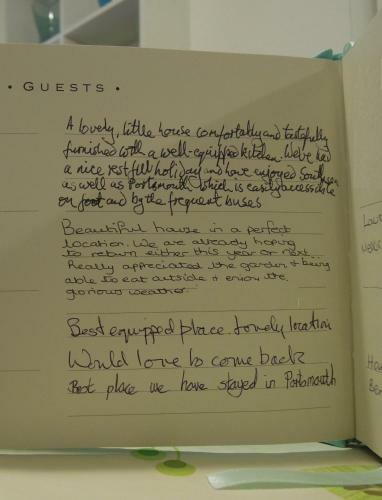 • GUESTS •
A lovely, little house comfortably and tastefully
furnished with a well-equipped kitchen. We've had
a nice restfull holiday and have enjoyed Southsea
as well as Portsmouth which is easily accessible
on foot and by the frequent buses
Beautiful house in a perfect
location. We are already hoping
to return either this year or next...
Really appreciated the garden & being
able to eat outside & enjoy the
glorious weather.
Best equipped place. Lovely location
Would love to come back
Best place we have stayed in Portsmouth